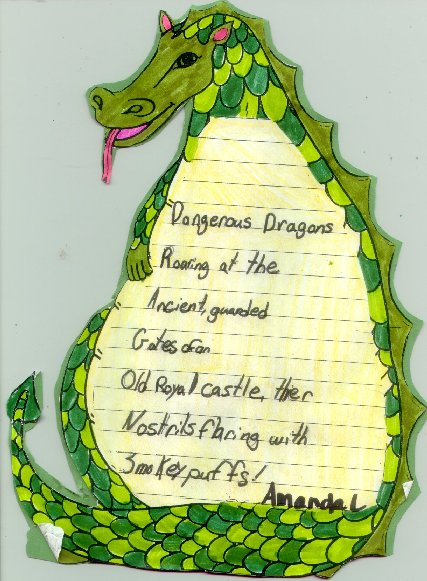 Dangerous Dragons
Roaring at the
Ancient, guarded
Gates of an
Old Royal castle, ther
Nostrils flaring with
Smokey puffs!
Amanda L